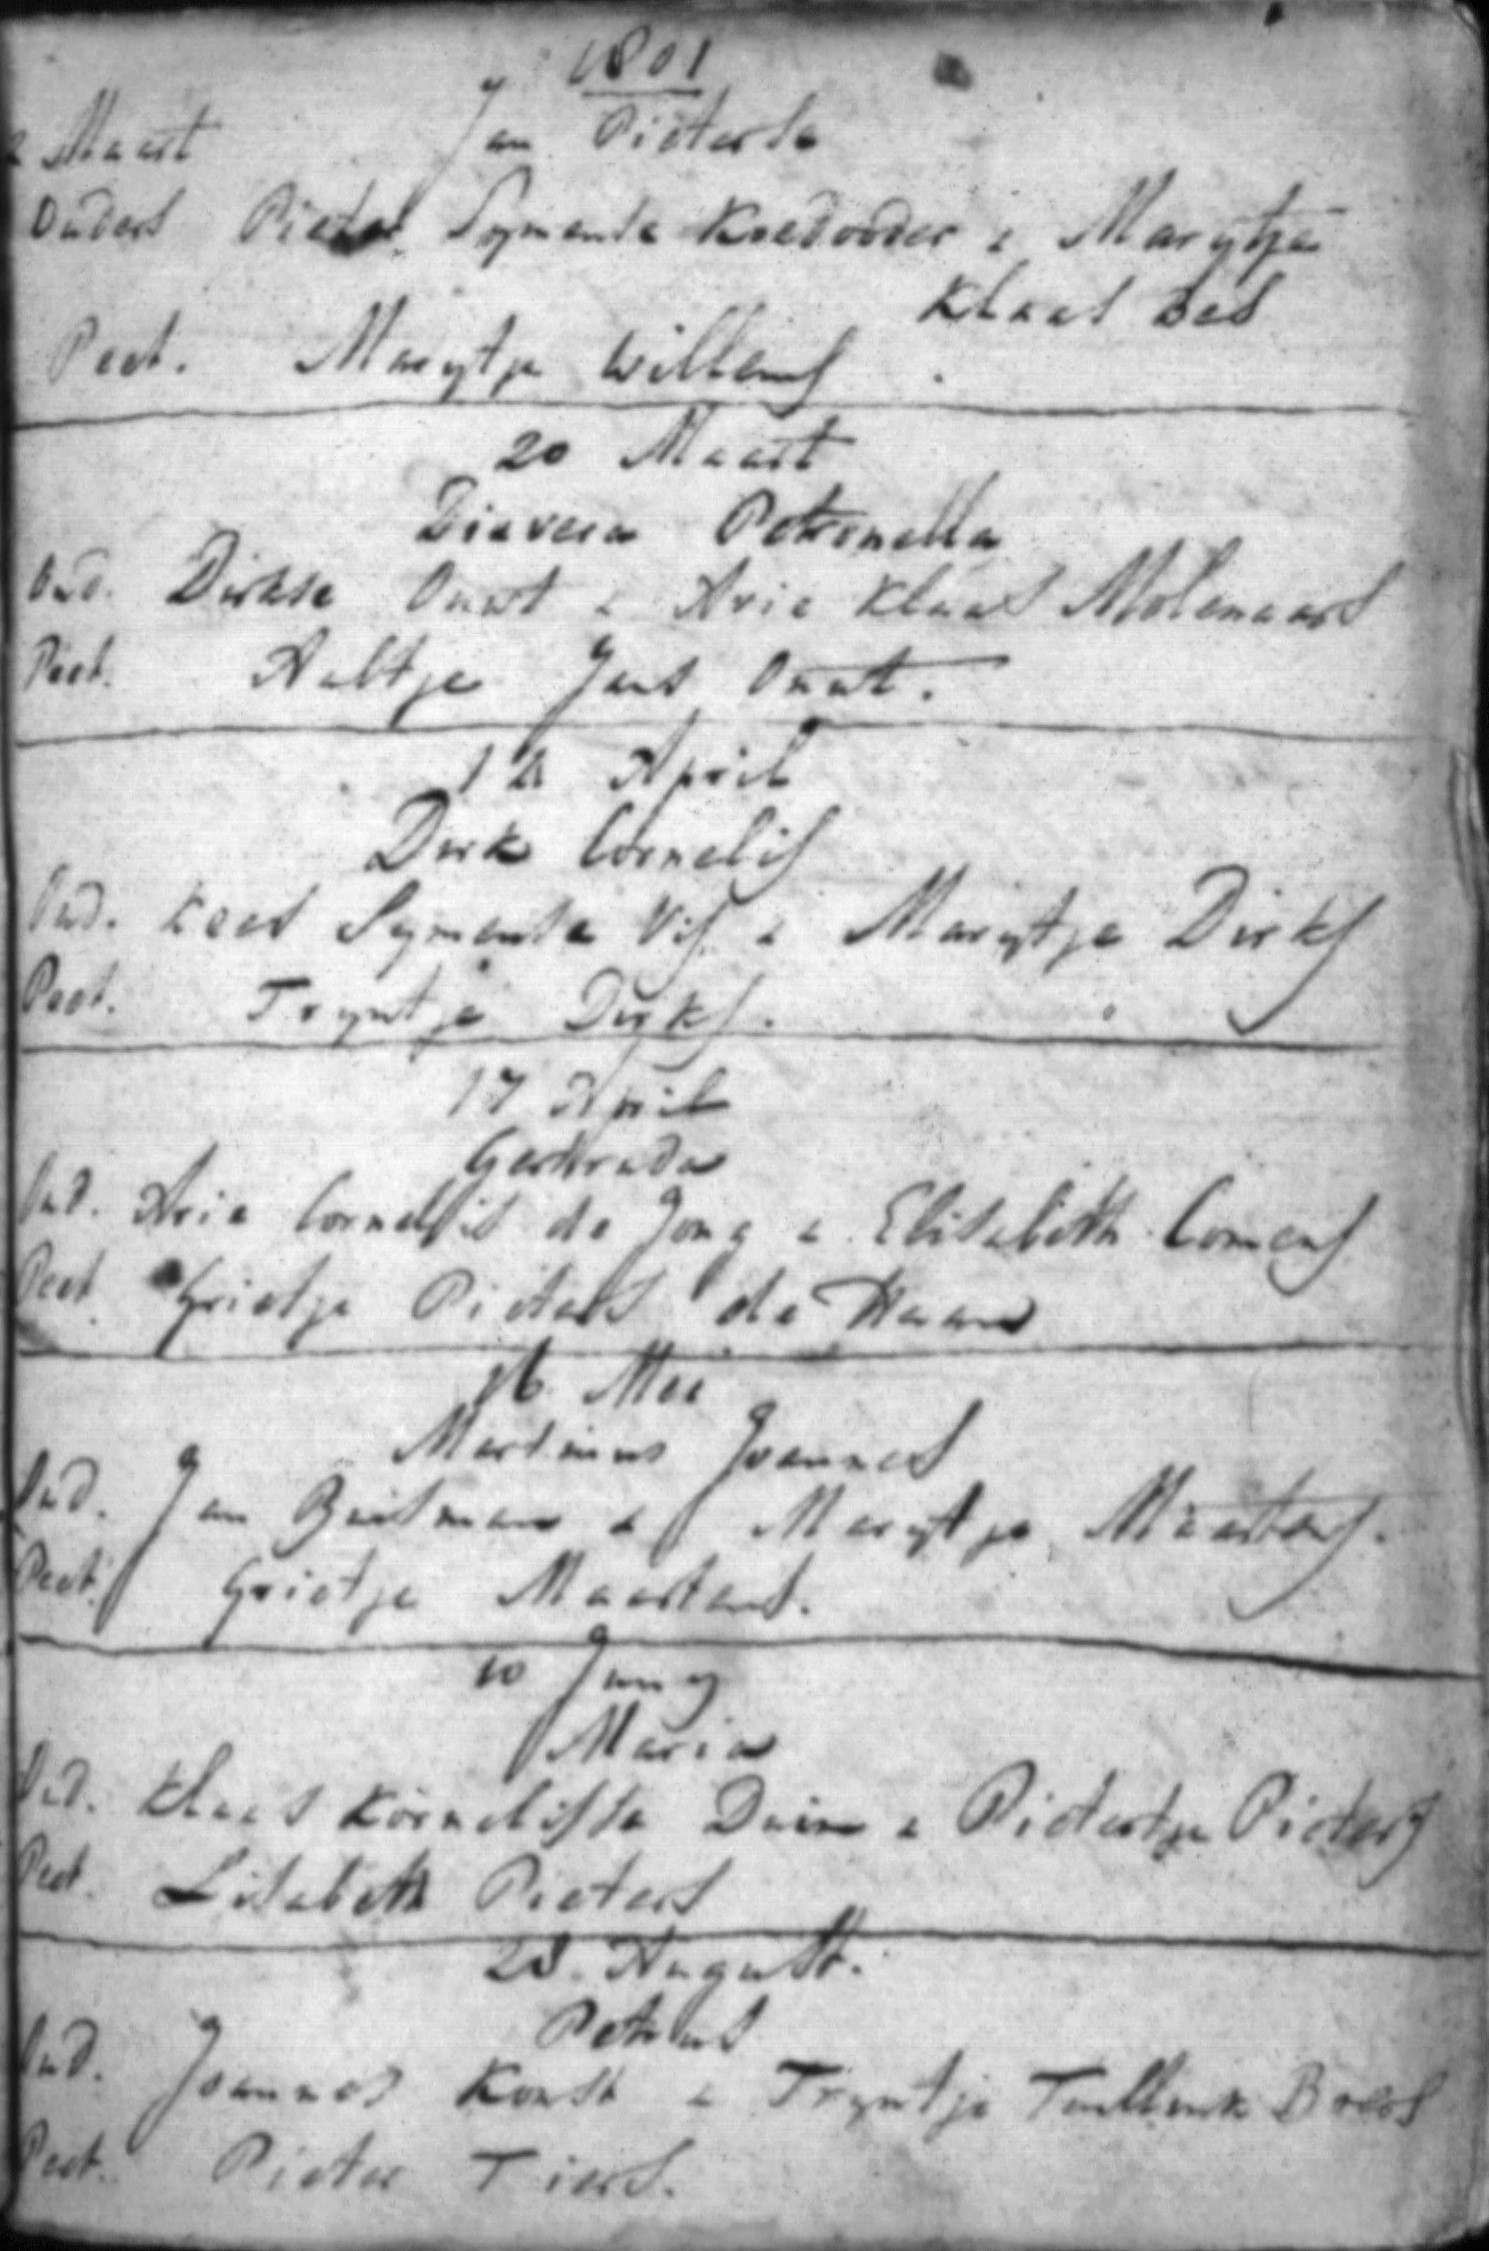 1801
2 Maart Jan Pieterse
Ouders Pieter Symense Koedooder & Marytje
Klaas Bes
Peet. Marytje Willems
20 Maart
Dievera Petronella
Oud. Dirkse Onnt & Arie Klaas Molenaars
Peet. Aeltje Jans Onnt.
April
Dirk Cornelis
Oud. Kees Symense Vis & Marytje Dirks
Peet. Tryntje Dirks.
17 April
Gertruda
Oud. Arie Cornelis de Jong & Elisabeth Comens
Peet Grietje Pieters de Haan
16 Mei
Martinus Joannes
Oud. Jan Buitman & Marytje Maartens.
Peet. Grietje Maartens.
10 Juny
Maria
Oud. Klaas Kornelisse Duin & Pietertje Pieters
Peet. Lisabeth Pieters
28. August.
Petrus
Oud. Joannes Konst & Tryntje Broers
Peet. Pieter Tiers.